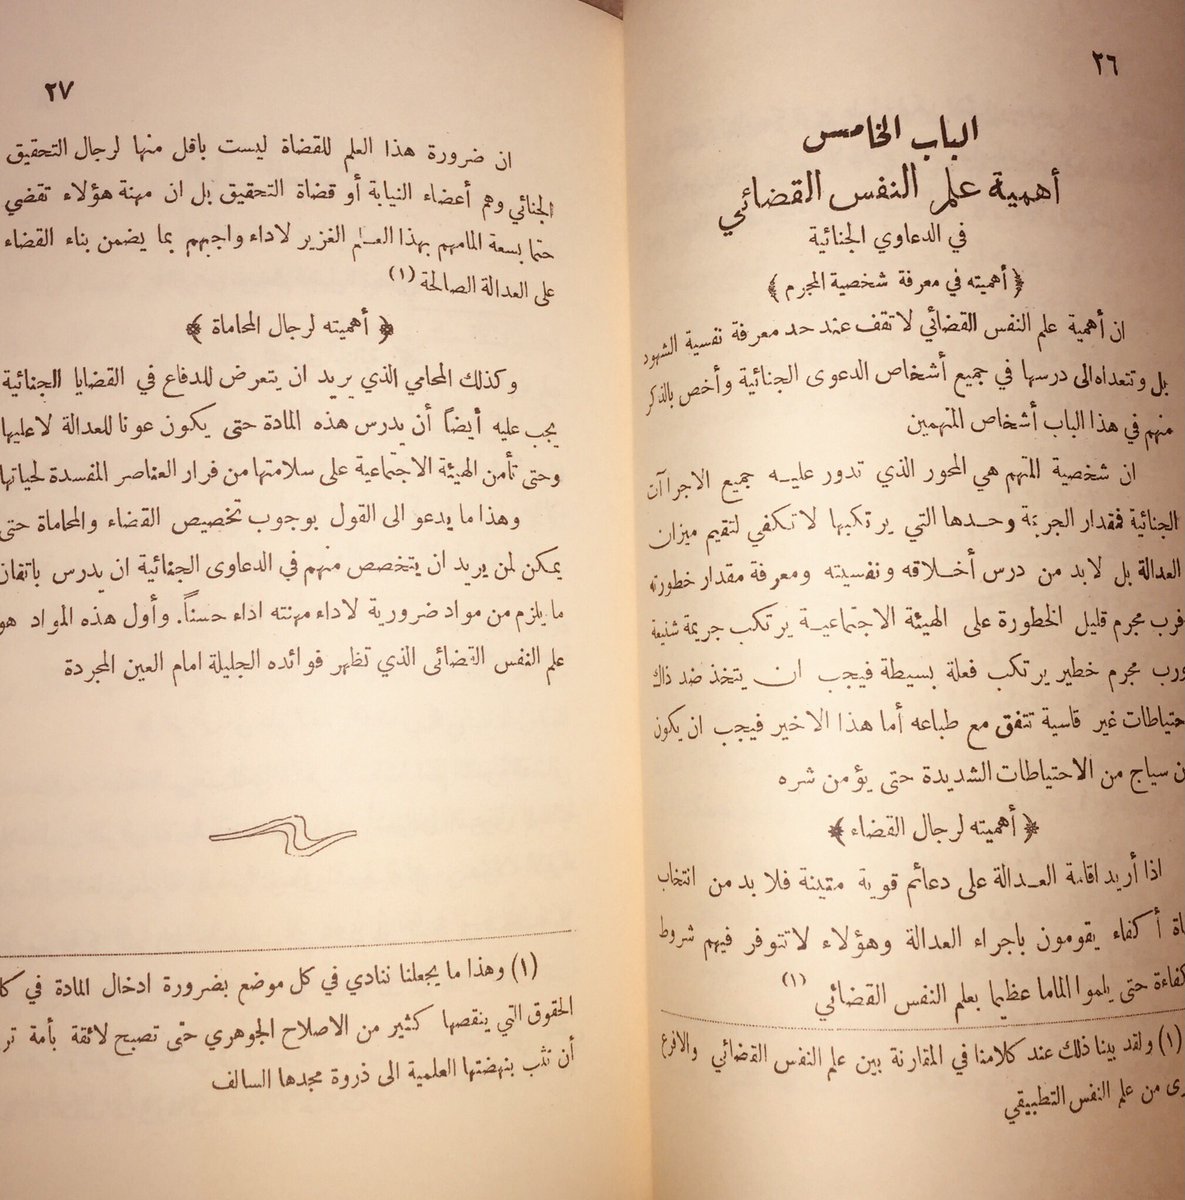 ٢٦
الباب الخامس
أهمية علم النفس القضائي
في الدعاوي الجنائية
﴿ أهميته في معرفة شخصية المجرم ﴾
ان أهمية علم النفس القضائي لا تقف عند حد معرفة نفسية الشهود
بل وتتعداه الى درسها في جميع أشخاص الدعوى الجنائية وأخص بالذكر
منهم في هذا الباب أشخاص المتهمين
ان شخصية المتهم هي المحور الذي تدور عليه جميع الاجراآت
الجنائية فمقدار الجريمة وحدها التي يرتكبها لا تكفي لتقيم ميزان
العدالة بل لابد من درس أخلاقه ونفسيته ومعرفة مقدار خطورته
فرب مجرم قليل الخطورة على الهيئة الاجتماعية يرتكب جريمة شنيعة
ورب مجرم خطير يرتكب فعلة بسيطة فيجب ان يتخذ ضد ذاك
حتياطات غير قاسية تتفق مع طباعه أما هذا الاخير فيجب ان يكون
ن سياج من الاحتياطات الشديدة حتى يؤمن شره
﴿ أهميته لرجال القضاء ﴾
اذا أريد اقامة العدالة على دعائم قوية متينة فلا بد من انتخاب
اة أكفاء يقومون باجراء العدالة وهؤلاء لا تتوفر فيهم شروط
كفاءة حتى يلموا الماما عظيما بعلم النفس القضائي (١)
(١) ولقد بينا ذلك عند كلامنا في المقارنة بين علم النفس القضائي والافرع
رى من علم النفس التطبيقي
٢٧
ان ضرورة هذا العلم للقضاة ليست باقل منها لرجال التحقيق
الجنائي وهم أعضاء النيابة أو قضاة التحقيق بل ان مهنة هؤلاء تقضي
حتما بسعة المامهم بهذا العلم الغزير لاداء واجبهم بما يضمن بناء القضاء
على العدالة الصالحة (١)
﴿ أهميته لرجال المحاماة ﴾
وكذلك المحامي الذي يريد ان يتعرض للدفاع في القضايا الجنائية
يجب عليه أيضاً أن يدرس هذه المادة حتى يكون عونا للعدالة لا عليها
وحتى تأمن الهيئة الاجتماعية على سلامتها من فرار العناصر المفسدة لحياتها
وهذا ما يدعو الى القول بوجوب تخصيص القضاء والمحاماة حتى
يمكن لمن يريد ان يتخصص منهم في الدعاوى الجنائية ان يدرس باتقان
ما يلزم من مواد ضرورية لاداء مهنته اداء حسناً. وأول هذه المواد هو
علم النفس القضائى الذي تظهر فوائده الجليلة امام العين المجردة
(١) وهذا ما يجعلنا ننادي في كل موضع بضرورة ادخال المادة في كا
الحقوق التي ينقصها كثير من الاصلاح الجوهري حتى تصبح لائقة بأمة تر
أن تثب بنهضتها العلمية الى ذروة مجدها السالف